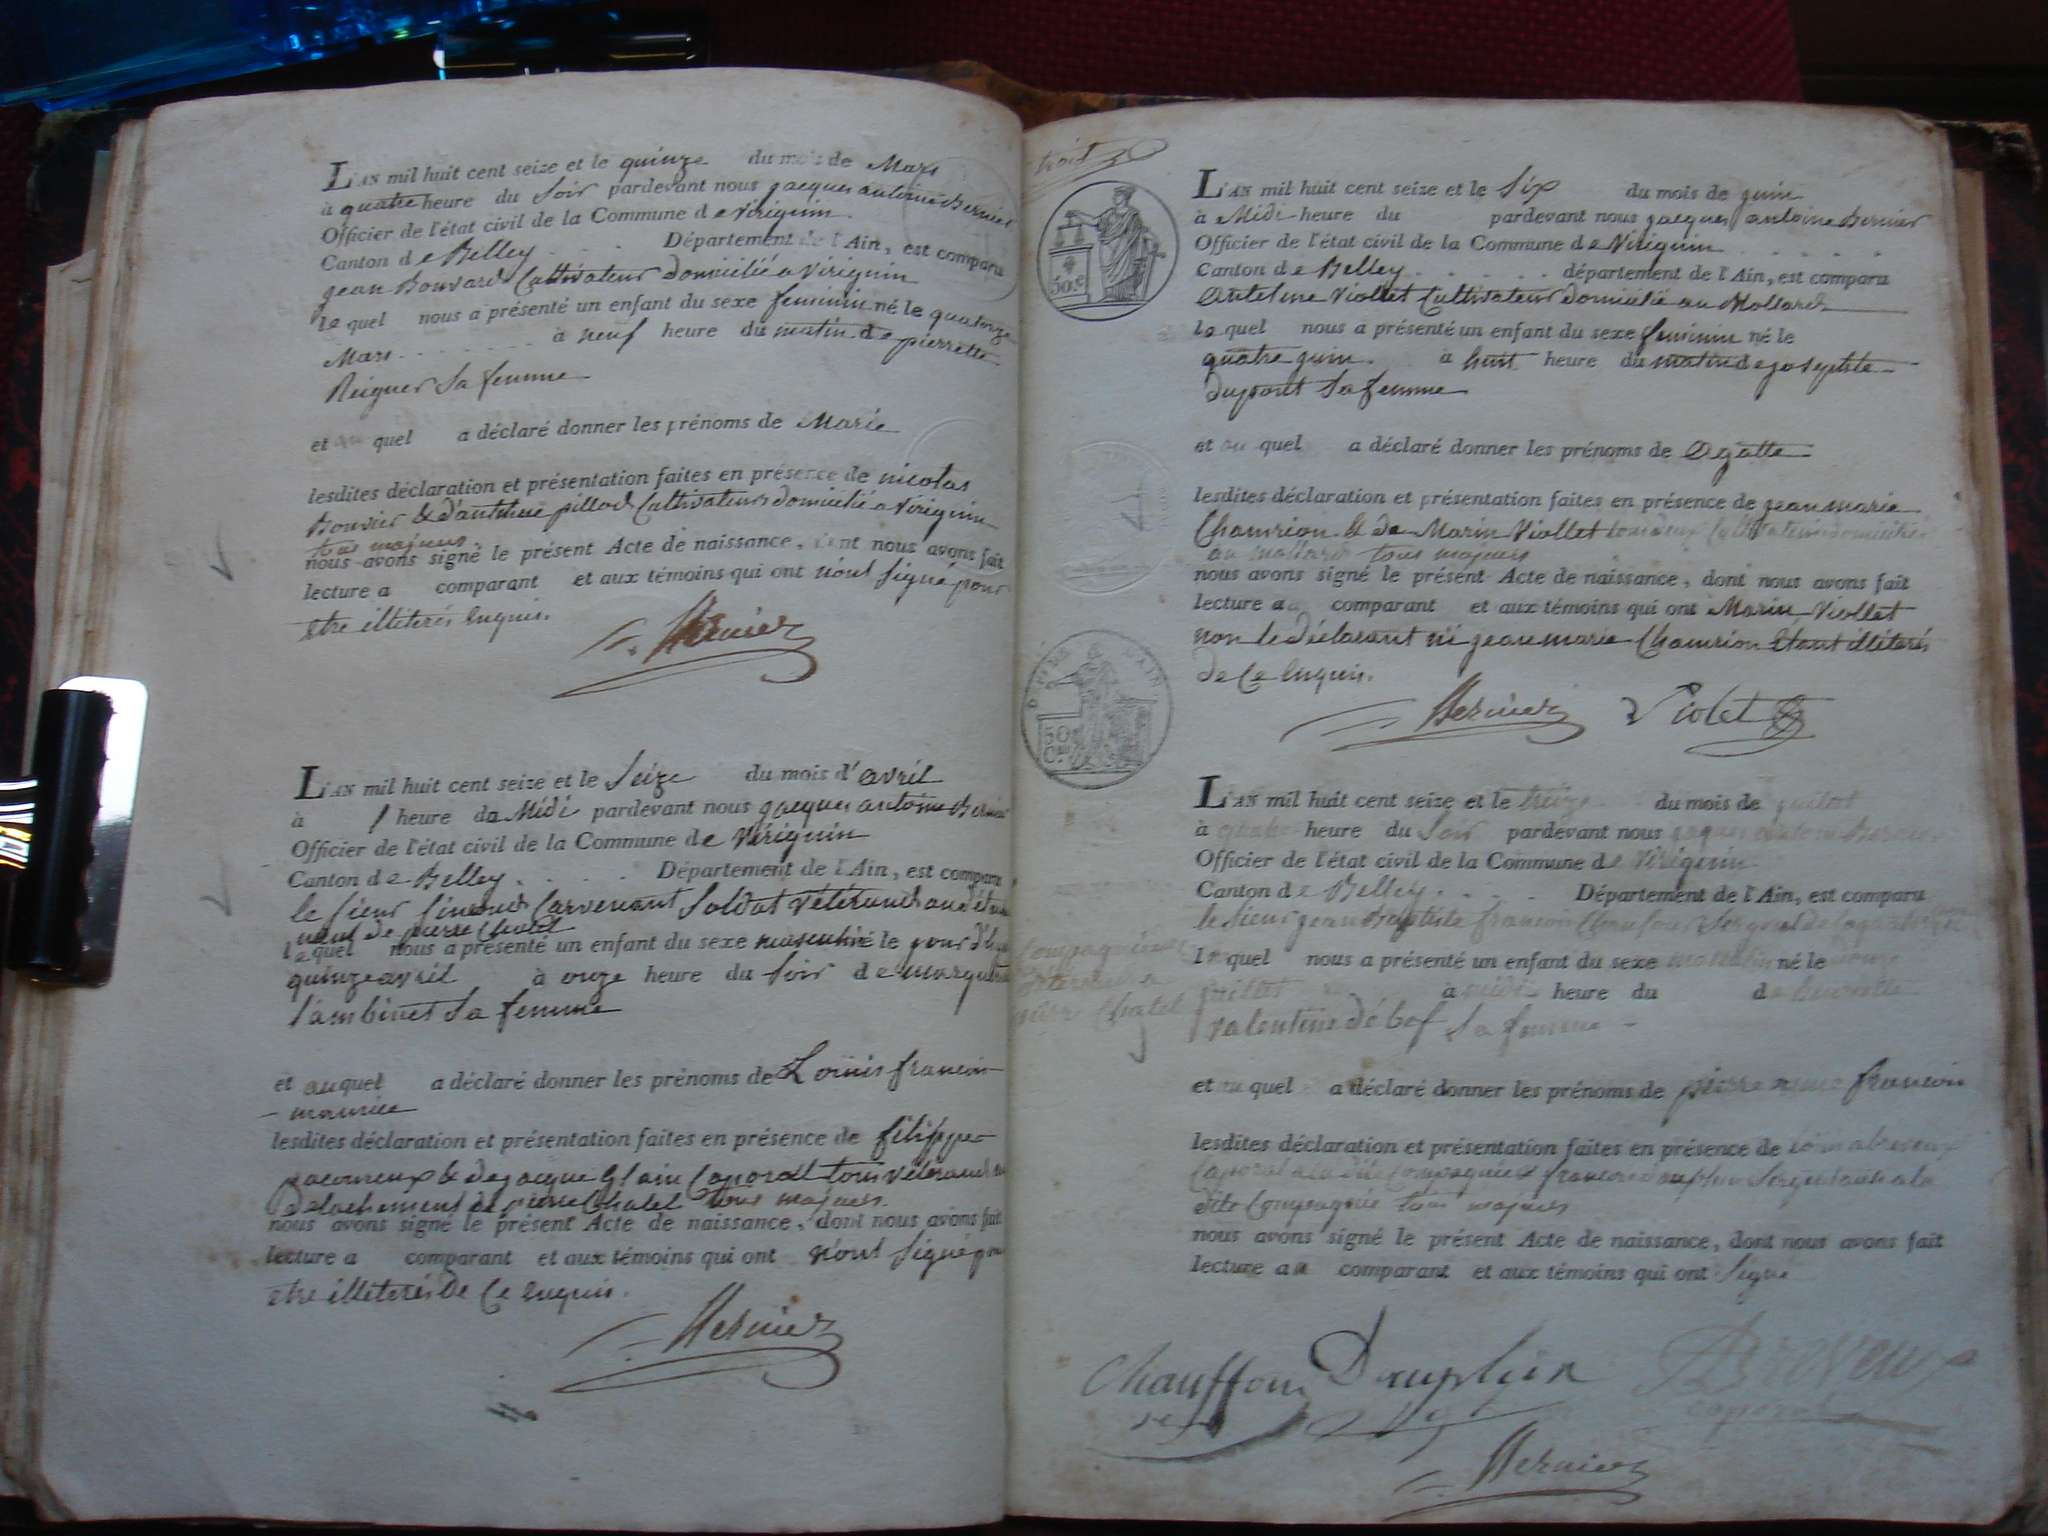 L'AN mil huit cent seize et le quinze du mois de Mars
à quatre heure du Soir pardevant nous jacques antoine Bernier
Officier de l'état civil de la Commune de Virignin
Canton de Belley Département de l'Ain, est comparu
jean Bouvard Cultivateur domicilié a Virignin
lequel nous a présenté un enfant du sexe feminin né le quatorze
Mars à neuf heure du matin de pierrette
Reiguer Sa femme
et auquel a déclaré donner les prénoms de Marie
lesdites déclaration et présentation faites en présence de nicolas
Bouvier & d'antelme pillod Cultivateurs domicilié a Virignin
tous majeurs.
nous avons signé le présent Acte de naissance, dont nous avons fait
lecture a comparant et aux témoins qui ont n'ont signé pour
etre illiterés Enquis.
Bernier
L'AN mil huit cent seize et le Seize du mois d'avril
à 1 heure da Midi pardevant nous jacques antoine Bernier
Officier de l'état civil de la Commune de Virignin
Canton de Belley Département de l'Ain, est comparu
le Sieur Carvenant Soldat Vétérand
de pierre Chatel
lequel nous a présenté un enfant du sexe masculin né le jour d'hier
quinze avril à onze heure du Soir de marguerite
lambinet Sa femme
et auquel a déclaré donner les prénoms de Loüis francois
maurice
lesdites déclaration et présentation faites en présence de filippe
& de jacque Glain Caporal tous vétérands au
detachement de pierre Chatel tous majeurs.
nous avons signé le présent Acte de naissance, dont nous avons fait
lecture a comparant et aux témoins qui ont n'ont Signé pour
etre illiterés De Ce Enquis.
Bernier
trois
50 c
L'AN mil huit cent seize et le Six du mois de juin
à Midi heure du pardevant nous jacques antoine Bernier
Officier de l'état civil de la Commune de Virignin
Canton de Belley département de l'Ain, est comparu
Antelme Viollet Cultivateur domicilié au Mollard
lequel nous a présenté un enfant du sexe feminin né le
quatre juin à huit heure du matin de josephte
dupont Sa femme
et auquel a déclaré donner les prénoms de Agatte
lesdites déclaration et présentation faites en présence de jean marie
Chamrion & de Marin Viollet tous deux Cultivateurs domiciliés
au mollard tous majeurs
nous avons signé le présent Acte de naissance, dont nous avons fait
lecture au comparant et aux témoins qui ont Marin Viollet
non le déclarant ni jean marie Chamrion Etant illiterés
de Ce Enquis.
Bernier Violet
50
L'AN mil huit cent seize et le treize du mois de juillet
à quatre heure du Soir pardevant nous jacques antoine Bernier
Officier de l'état civil de la Commune de Virignin
Canton de Belley Département de l'Ain, est comparu
le Sieur jean Baptiste francois Chaufour Sergent de la
Compagnie
pierre Chatel
lequel nous a présenté un enfant du sexe masculin né le
juillet à midi heure du de
valentine Sa femme
et auquel a déclaré donner les prénoms de pierre francois
lesdites déclaration et présentation faites en présence de
Caporal a la dite Compagnie & francois dauphin Sergent a la
dite Compagnie tous majeurs
nous avons signé le présent Acte de naissance, dont nous avons fait
lecture au comparant et aux témoins qui ont Signé
Chauffour Dauphin
caporal
Bernier